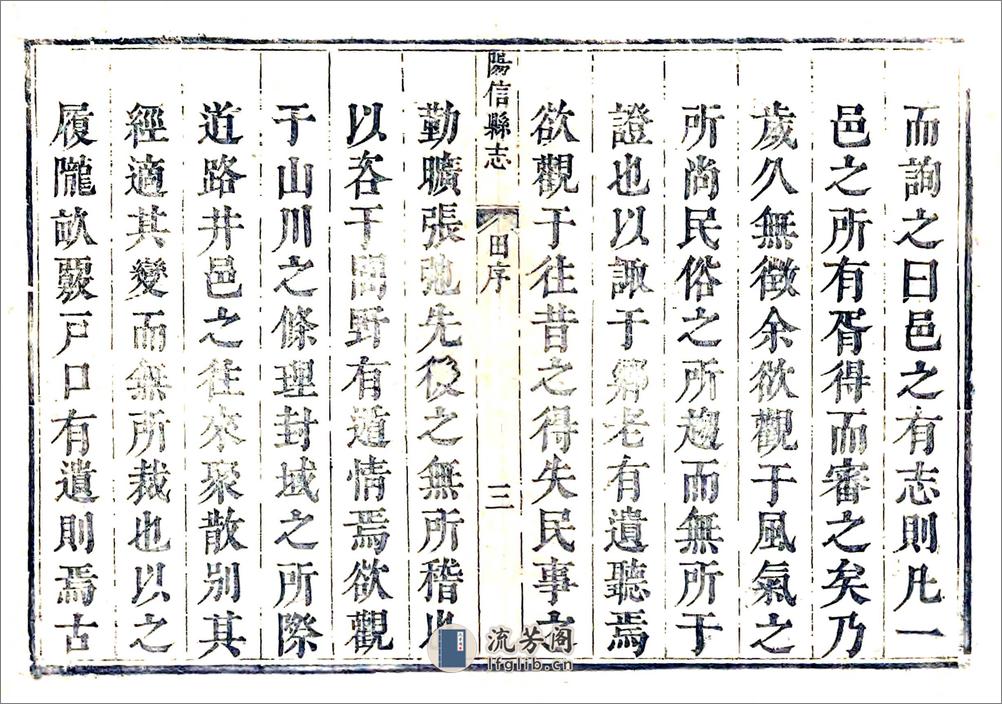 而詢之曰邑之有志則凡一
邑之所有胥得而審之矣乃
歲久無徵余欲觀于風氣之
所尚民俗之所趨而無所于
證也以諏于鄉老有遺聽焉
欲觀于往昔之得失民事之
陽信縣志
田序
三
勤曠張弛先後之無所稽也
以咨于田野有遁情焉欲觀
于山川之條理封域之所際
道路井邑之往來聚散別其
經適其變而無所裁也以之
履隴畝覈戸口有遺則焉古
流芳阁
lfglib.cn